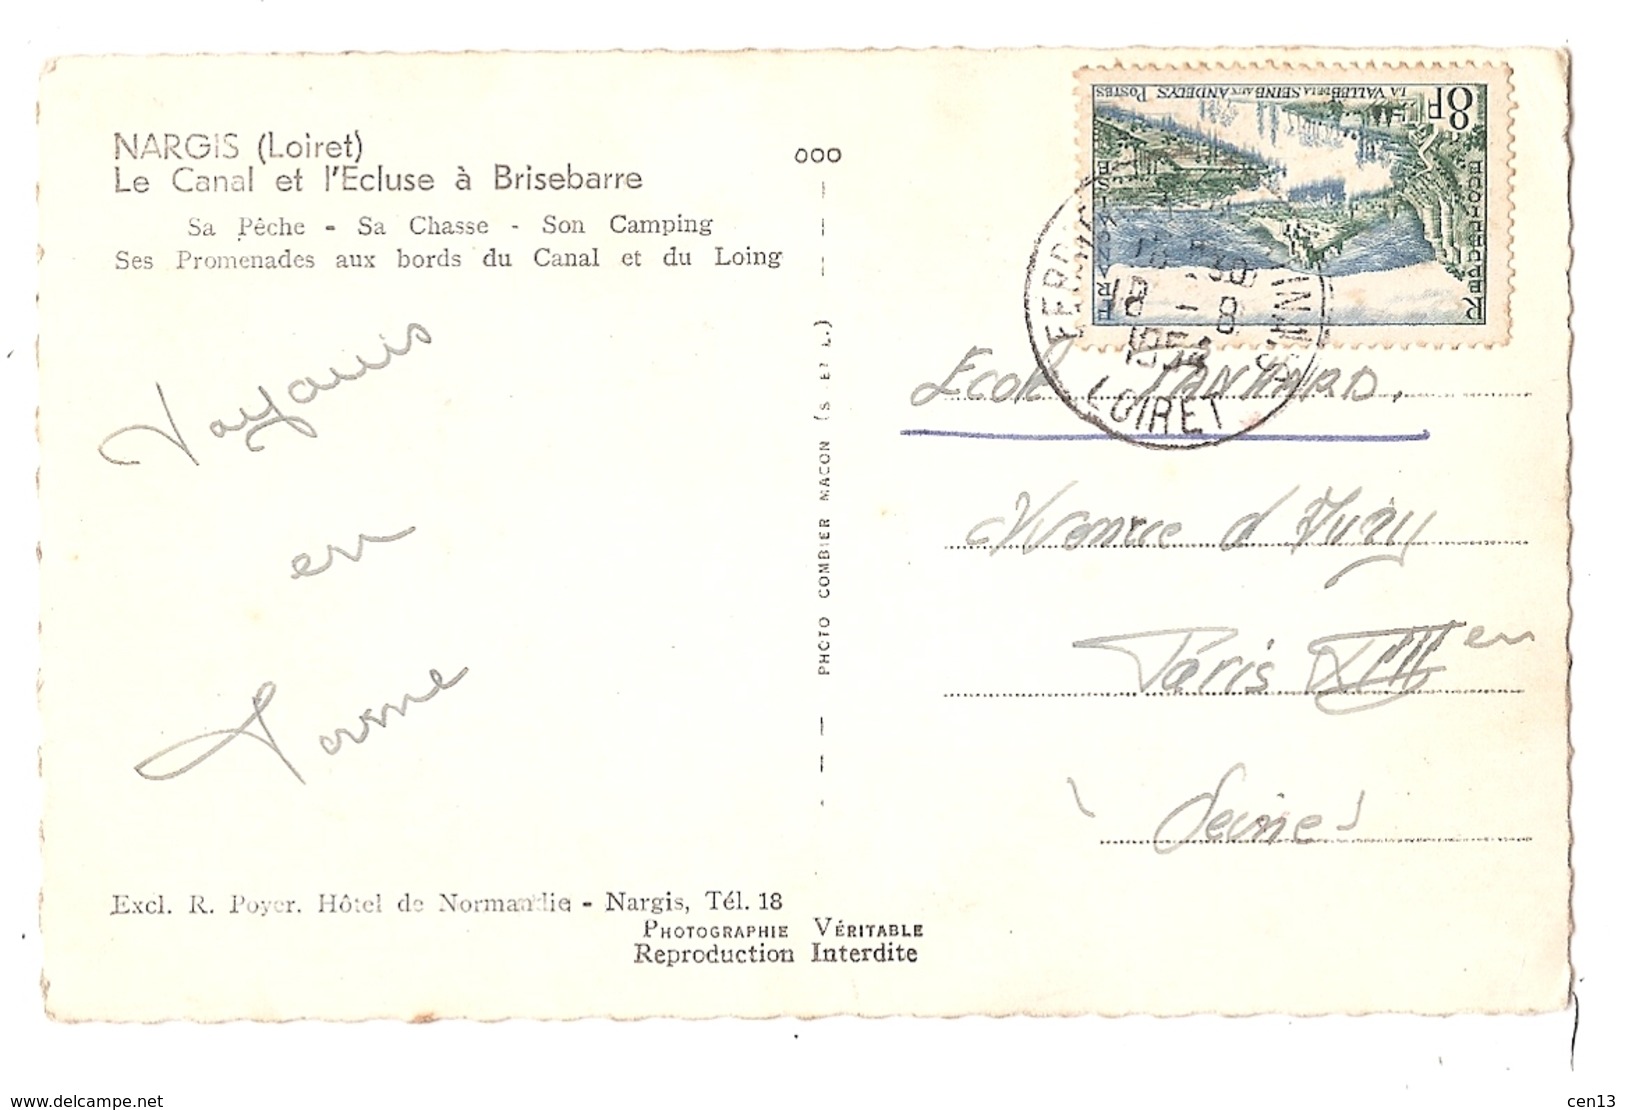 NARGIS (Loiret)
Le Canal et l'Ecluse à Brisebarre
Sa Pêche - Sa Chasse - Son Camping
Ses Promenades aux bords du Canal et du Loing
en
Excl. R. Poyer. Hôtel de Normandie - Nargis, Tél. 18
PHOTOGRAPHIE VÉRITABLE
Reproduction Interdite
000
PHOTO COMBIER MACON (S. ET L.)
8F
LA VALLEE DE LA SEINE AUX ANDELYS POSTES
REPUBLIQUE FRANCAISE
18 - 8
LOIRET
Ecole
Avenue d'Ivry
Paris XIII en
(Seine)
www.delcampe.net
cen13